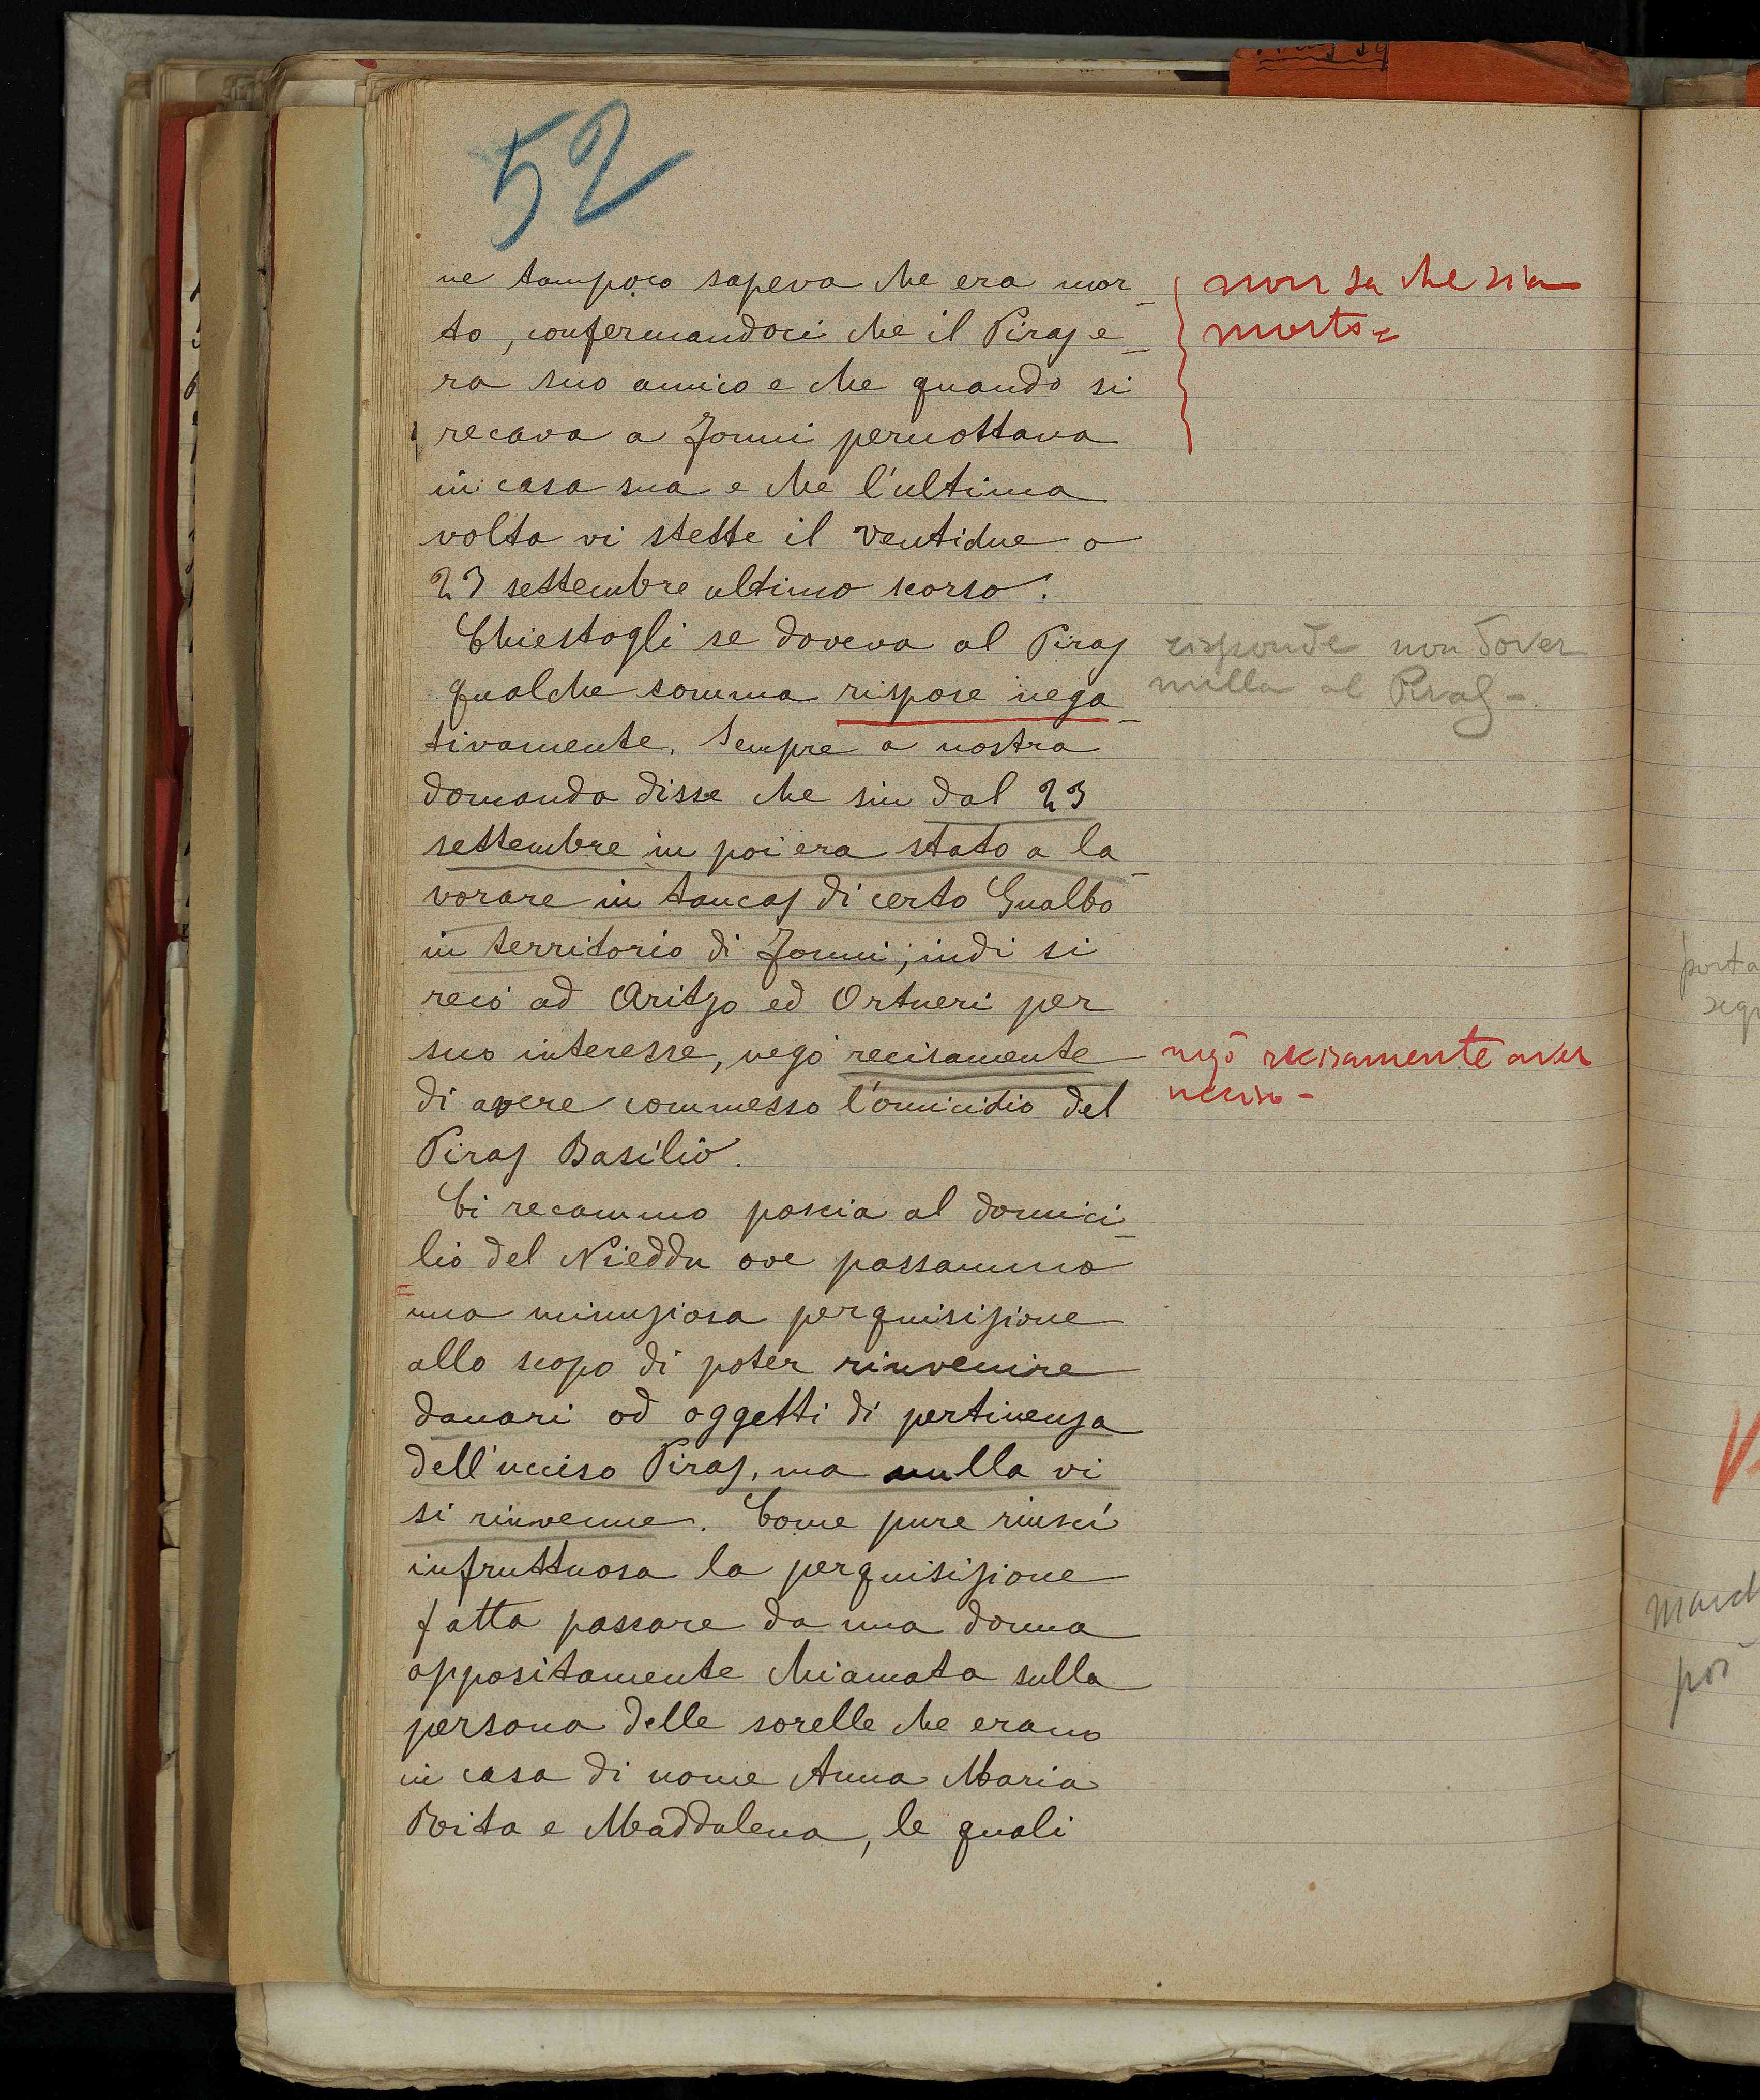 52
ne tampoco sapeva che era mor_
to, confermandoci che il Piras e_
ra suo amico e che quando si
recava a Jonni pernottava
in casa sua e che l'ultima
volta vi stette il ventidue o
23 settembre ultimo scorso.
Chiestogli se doveva al Piras
qualche somma rispose nega_
tivamente. Sempre a nostra
domanda disse che sin dal 23
settembre in poi era stato a la_
vorare in tancas di certo Gualbo
in territorio di Jonni; indi si
recò ad Aritzo ed Ortueri per
suo interesse, negò recisamente
di avere commesso l'omicidio del
Piras Basilio.
Ci recammo poscia al domici_
lio del Nieddu ove passammo
una minuziosa perquisizione
allo scopo di poter rinvenire
danari od oggetti di pertinenza
dell'ucciso Piras, ma nulla vi
si rinvenne. Come pure riuscì
infruttuosa la perquisizione
fatta passare da una donna
appositamente chiamata sulla
persona delle sorelle che erano
in casa di nome Anna Maria
Rita e Maddalena, le quali
non sa che sia
morto=
risponde non dover
nulla al Piras-
negò recisamente aver
ucciso-
poi